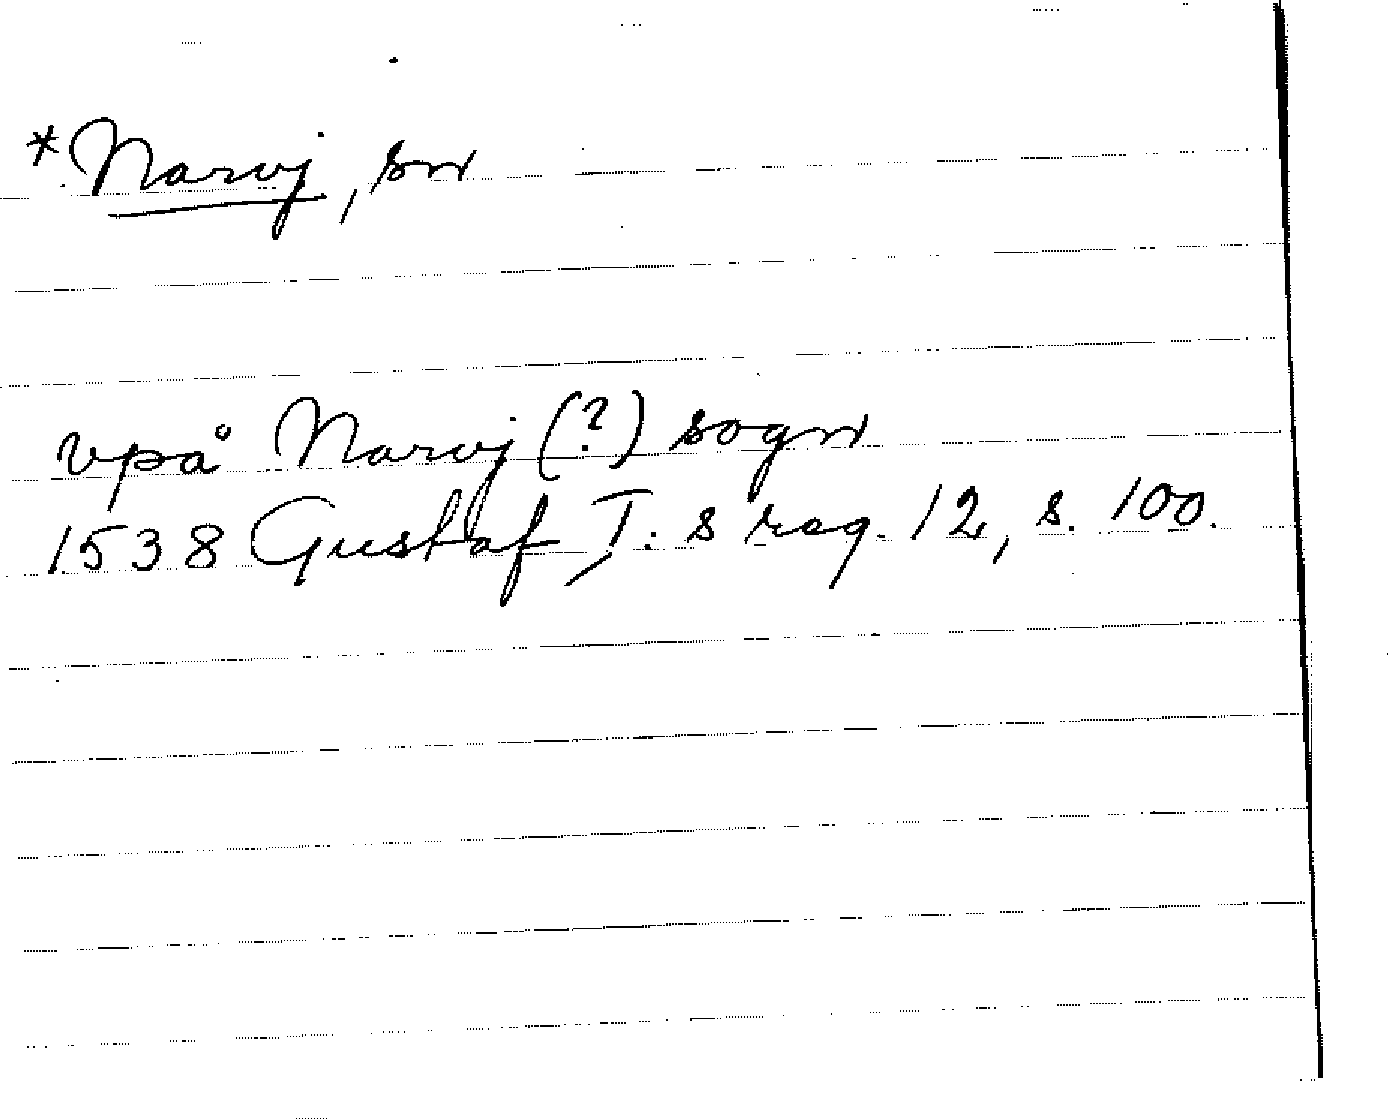 *Narvj, sn
vpå Narvj (?) sogn
1538 Gustaf I:s reg. 12, s. 100.